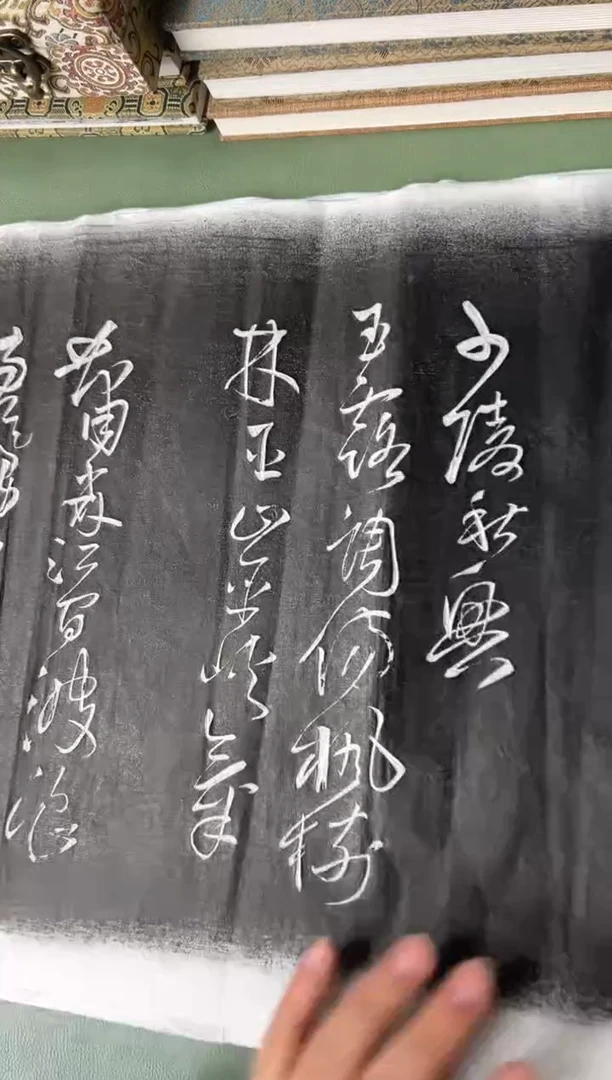 少陵秋興
玉露凋傷楓樹
林巫山巫峽氣
蕭森江間波浪